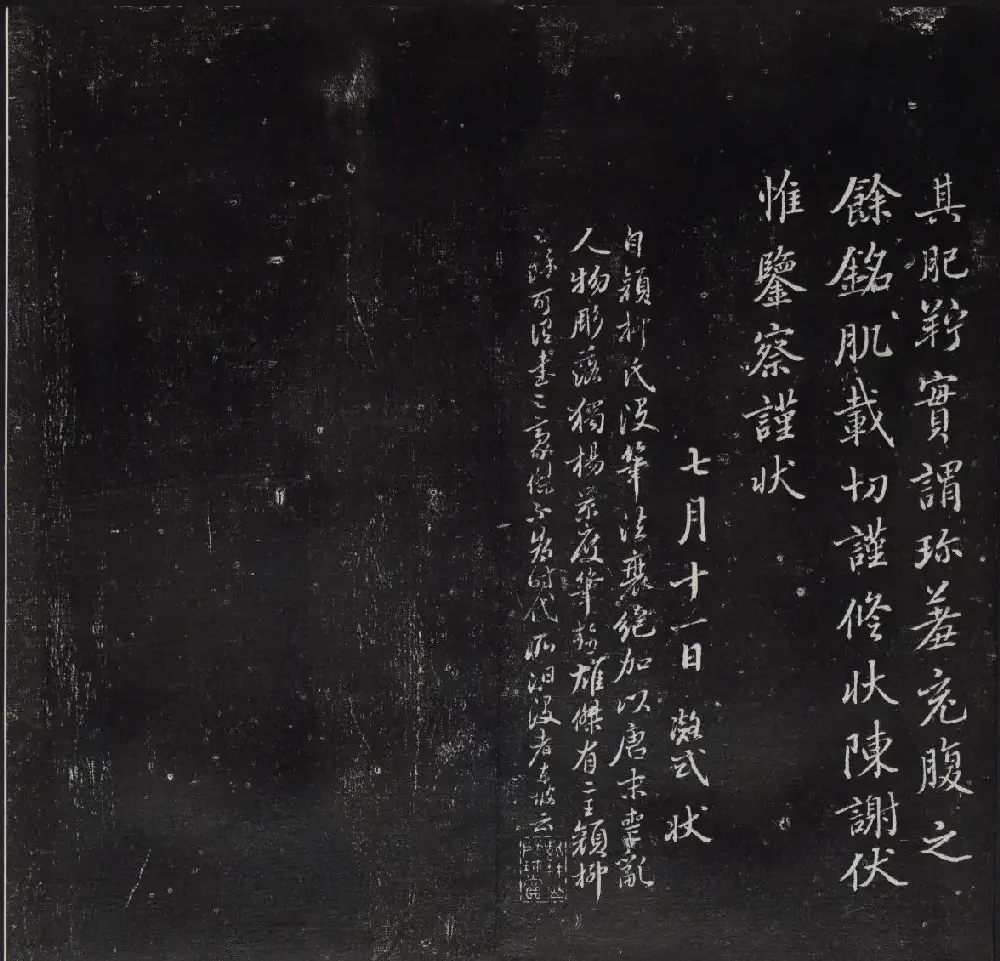 其肥羜實謂珎羞充腹之
餘銘肌載切謹修状陳謝伏
惟鑒察謹状
七月十一日 凝式 状
自顔柳氏没筆法衰絶加以唐末喪亂
人物彫落獨楊景度筆蹟雄傑有二王顔柳
之餘可謂書之豪傑不為時代所汩没者東坡云